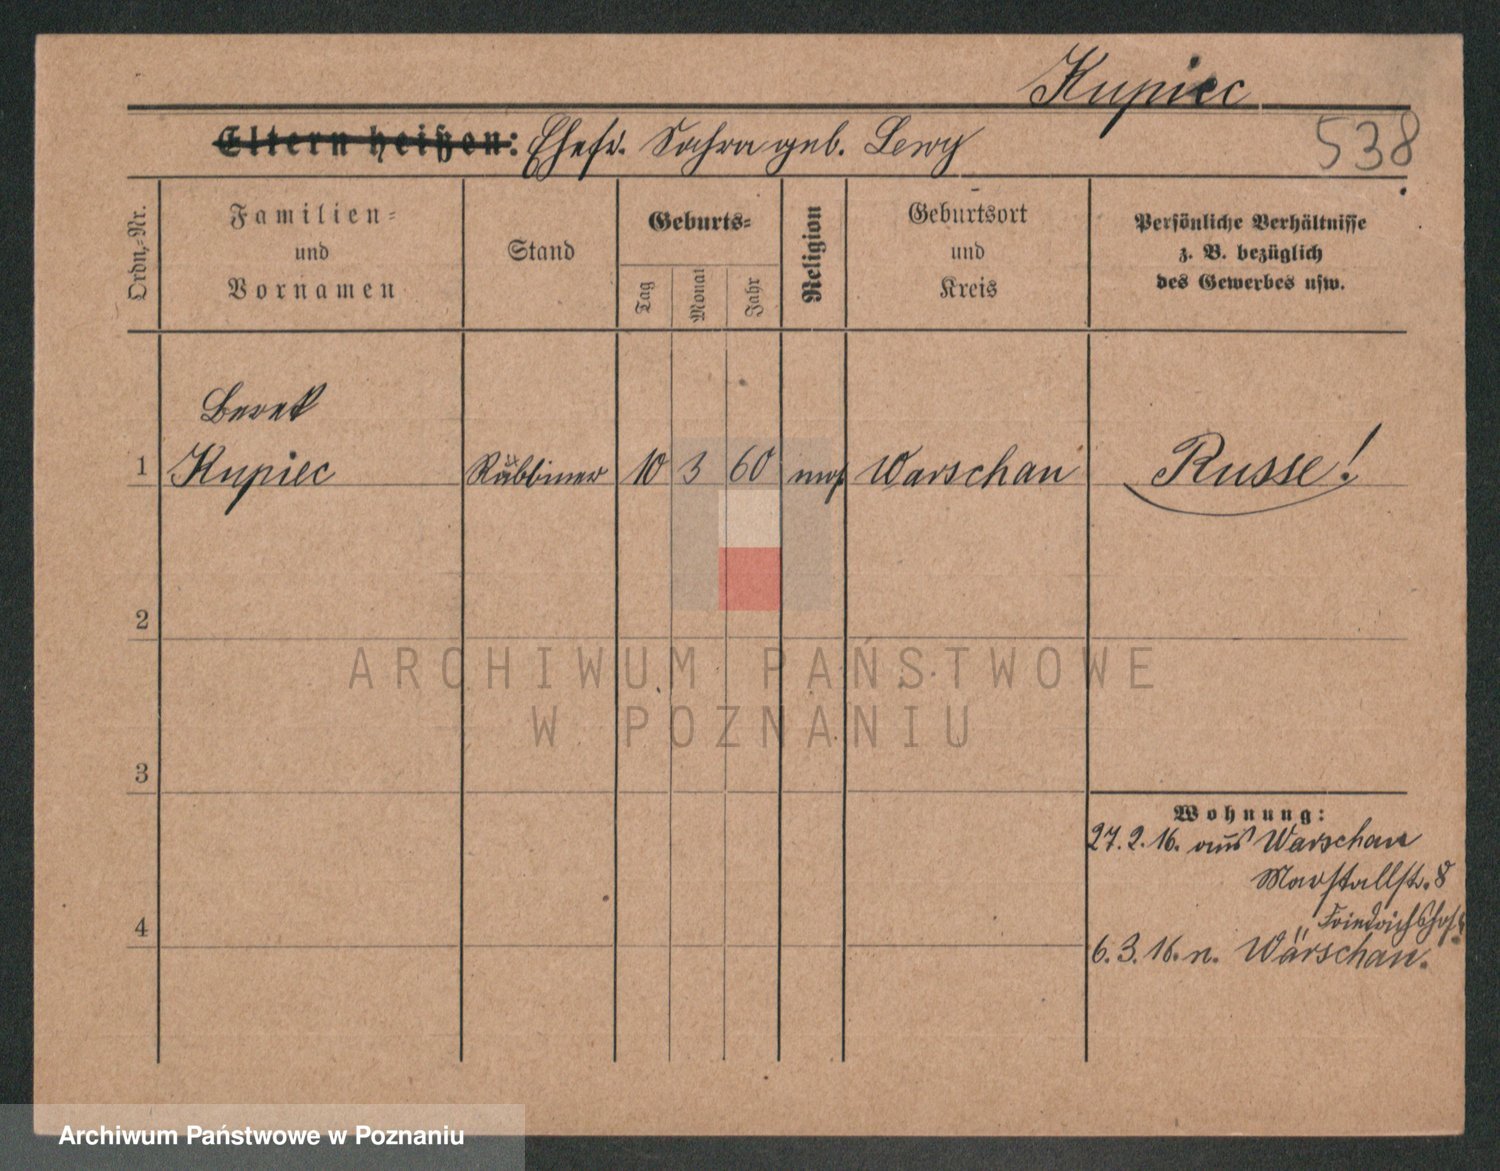 Kupiec
Eltern heißen: Ehefr. Sahra geb. Lewy
538
Ordn.-Nr.
Familien-
und
Vornamen
Stand
Geburts-
Tag
Monat
Jahr
Religion
Geburtsort
und
Kreis
Persönliche Verhältnisse
z. B. bezüglich
des Gewerbes usw.
Berek
1 Kupiec Rabbiner 10 3 60 mos Warschau Russe!
2
ARCHIWUM PAŃSTWOWE
W POZNANIU
3
Wohnung:
27.2.16. aus Warschau
Marstallstr. 8
Friedrichshof
4
6.3.16. n. Warschau.
Archiwum Państwowe w Poznaniu